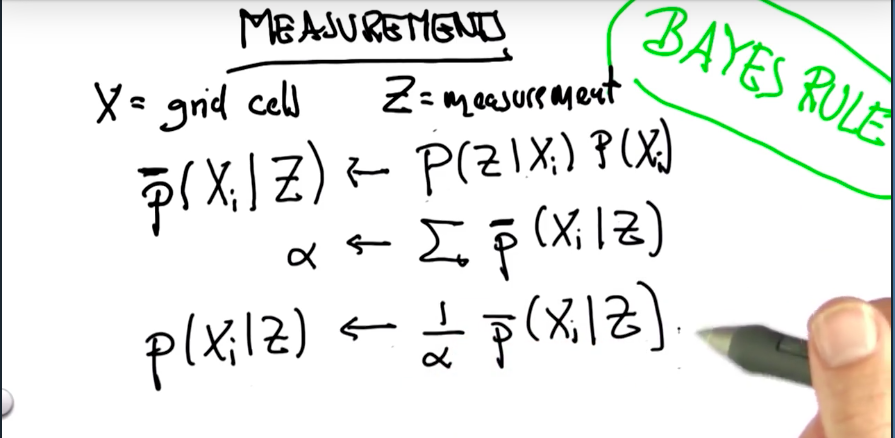 MEASUREMENTS
BAYES RULE
X = grid cell Z = measurement
p̄(Xᵢ|Z) ← P(Z|Xᵢ) P(Xᵢ)
α ← Σ p̄(Xᵢ|Z)
p(Xᵢ|Z) ← 1/α p̄(Xᵢ|Z)